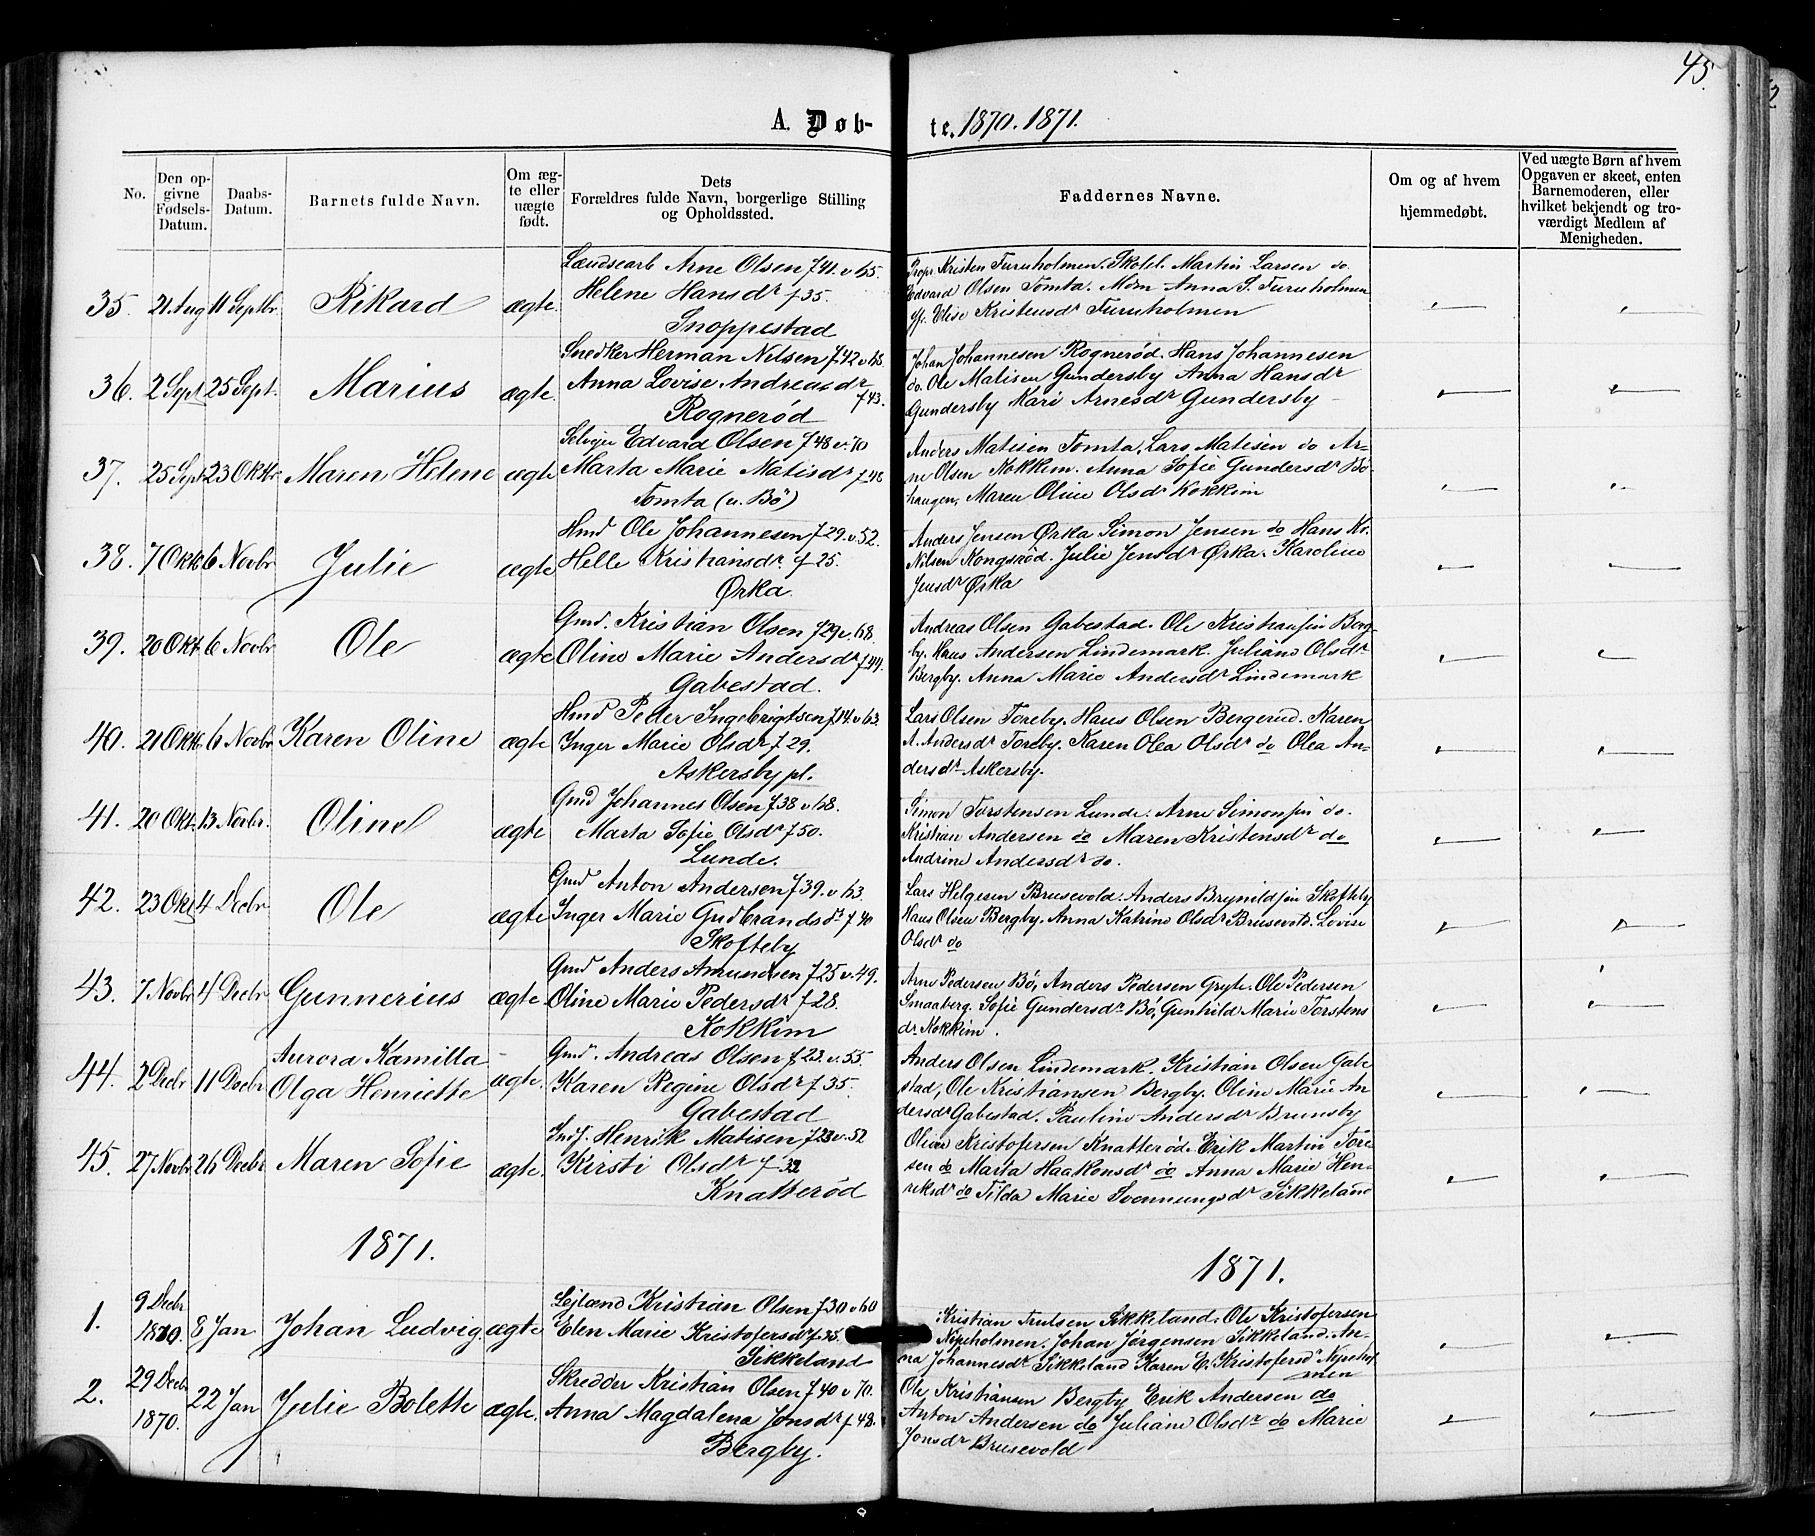 45.
A. Døb-
te. 1870. 1871.
No.
Den op-
givne
Fødsels-
Datum.
Daabs-
Datum.
Barnets fulde Navn.
Om æg-
te eller
uægte
født.
Dets
Forældres fulde Navn, borgerlige Stilling
og Opholdssted.
Faddernes Navne.
Om og af hvem
hjemmedøbt.
Ved uægte Børn af hvem
Opgaven er skeet, enten
Barnemoderen, eller
hvilket bekjendt og tro-
værdigt Medlem af
Menigheden.
35. 21 Aug 11 Septbr. Rikard ægte.
Landsearb Arne Olsen f41. v 65.
Helene Hansdr f35.
Snoppestad
Propr Kristen Furuholmen. Skolel. Martin Larsen do.
Edvard Olsen Tomta. Mdm Anna S. Furuholmen
Elise Kristensdr Furuholmen
36. 2 Sept 25 Sept. Marius ægte.
Snedker Herman Nilsen f42 v 63.
Anna Lovise Andreasdr
f43.
Rognerød
Johan Johannesen Rognerød. Hans Johannesen
do. Ole Matisen Gundersby Anna Hansdr
Gundersby Kari Arnesdr Gundersby
37. 25 Sept 23 Oktbr Maren Helene ægte
Selvejer Edvard Olsen f48 v. 70
Marta Marie Matisdr f48
Tomta (u. Bö)
Anders Matisen Tomta, Lars Matisen do Ar-
ne Olsen Kokkim. Anna Sofie Gundersdr Bö-
haugen, Maren Oline Olsdr Kokkim
38. 7 Oktb 6 Novbr Julie ægte
Hmd Ole Johannesen f29. v 52.
Helle Kristiansdr f25.
Ørka.
Anders Jensen Ørka Simon Jensen do Hans Kr.
Nilsen Kongsrød. Julie Jensdr Ørka. Karoline
Jensdr Ørka
39. 20 Okt. 6 Novbr Ole ægte
Gmd. Kristian Olsen f29 v. 68.
Oline Marie Andersdr f44.
Gabestad.
Andreas Olsen Gabestad. Ole Kristiansen Berg-
by. Hans Andersen Lindemark. Juliane Olsdr
Bergby. Anna Marie Andersdr Lindemark
40. 21 Okt. 6 Novbr Karen Oline ægte
Hmd Peder Ingebrigtsen f14. v 63.
Inger Marie Olsdr f29.
Askersby pl.
Lars Olsen Toreby. Hans Olsen Bergerud. Karen
A. Andersdr Toreby. Karen Olea Olsdr do Olea An-
dersdr Askersby.
41. 20 Okt. 13 Novbr. Oline ægte
Gmd Johannes Olsen f38 v 68.
Marta Sofie Olsdr f50.
Lunde.
Simon Torstensen Lunde. Arne Simonsen do.
Kristian Andersen do Maren Kristensdr do
Andrine Andersdr do.
42. 23 Okt 4 Decbr Ole ægte
Gmd Anton Andersen f39. v 63.
Inger Marie Gudbrandsdr f40
Skofteby
Lars Helgesen Brusevold. Anders Brynildsen Skofteby
Hans Olsen Bergby. Anna Katrine Olsdr Brusevold. Lovise
Olsdr do
43. 7 Novbr 4 Decbr Gunnerius ægte
Gmd Anders Amundsen f25 v. 49.
Oline Marie Pedersdr f28.
Kokkim
Arne Pedersen Bö, Anders Pedersen Gryte. Ole Pedersen
Smaaberg. Sofie Gundersdr Bö, Gunhild Marie Torstens
dr Kokkim.
44. 2 Decbr 11 Decbr Aurora Kamilla
Olga Henriette ægte.
Gmd. Andreas Olsen f23. v. 55.
Karen Regine Olsdr f35.
Gabestad
Anders Olsen Lindemark. Kristian Olsen Gabe
stad, Ole Kristiansen Bergby. Oline Marie An
dersdr Gabestad. Pauline Andersdr Brunsby
45. 27 Novbr 26 Decbr Maren Sofie ægte.
Inds. Henrik Matisen f23 v. 52
Kirsti Olsdr f32
Knatterød
Oliver Kristofersen Knatterød. Erik Martin Tore-
sen do Marta Haakonsdr do Anna Marie Hen-
riksdr do Tilda Marie Svennungsdr Sikkeland
1871.
1871.
1. 9 Decbr
1870. 8 Jan Johan Ludvig ægte
Lejlænd Kristian Olsen f30 v 60
Elen Marie Kristofersdr f35.
Sikkeland
Kristian Trulsen Sikkeland. Ole Kristofersen
Nyeholmen. Johan Jørgensen Sikkeland. An-
na Johannesdr Sikkeland Karen E. Kristofersdr Nyehol
men
2. 29 Decbr
1870. 22 Jan Julie Bolette ægte.
Skredder Kristian Olsen f40 v 70.
Anna Magdalena Jonsdr f48.
Bergby.
Ole Kristiansen Bergby Erik Andersen do
Anton Andersen do Juliane Olsdr do Marie
Jonsdr Brusevold